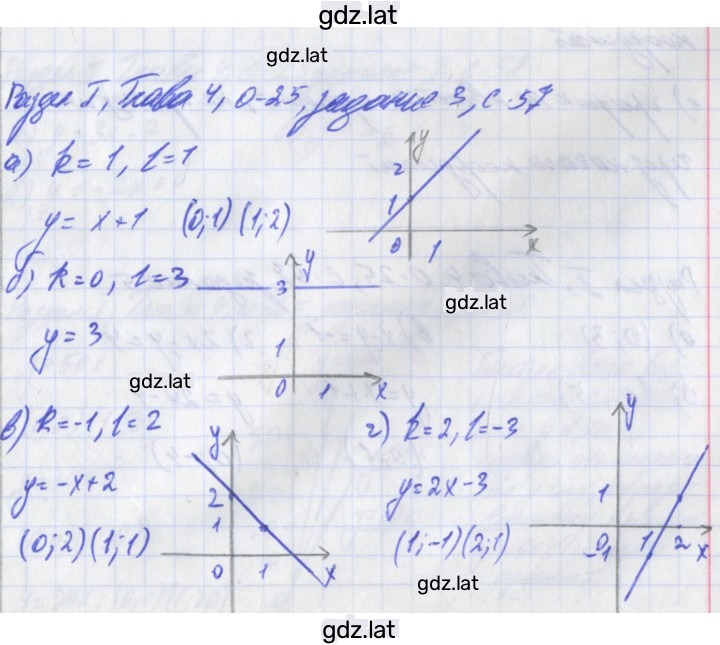 gdz.lat
gdz.lat
Раздел I, Глава 4, О-25, задание 3, с 57
а) k = 1, l = 1
y = x + 1 (0; 1) (1; 2)
y
2
1
0 1 x
б) k = 0, l = 3
y = 3
y
3
1
0 1 x
gdz.lat
gdz.lat
в) k = -1, l = 2
y = -x + 2
(0; 2) (1; 1)
y
2
1
0 1 x
г) k = 2, l = -3
y = 2x - 3
(1; -1) (2; 1)
y
1
0 1 2 x
-1
gdz.lat
gdz.lat